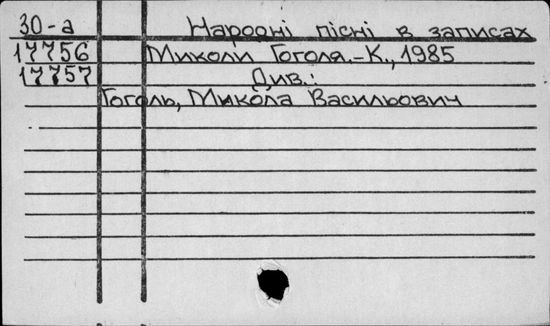 30-а Народні пісні в записах
17756 Миколи Гоголя.-К., 1985
17757 Див.:
Гоголь, Микола Васильович